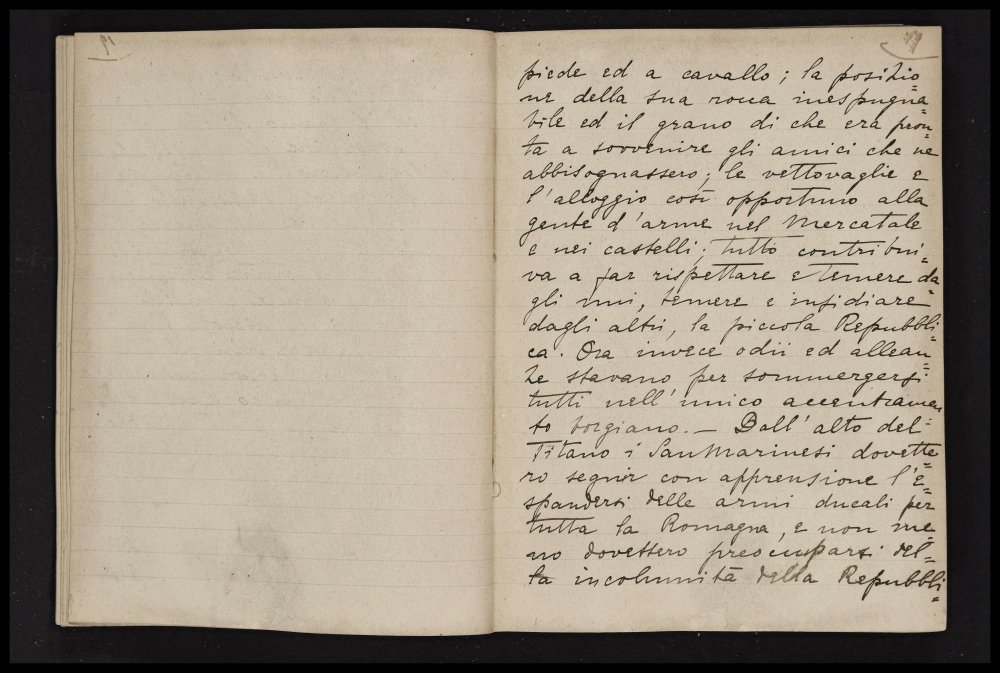 piede ed a cavallo; la posizio=
ne della sua rocca inespugna=
bile ed il grano di che era pron=
ta a sovvenire gli amici che ne
abbisognassero; le vettovaglie e
l'alloggio così opportuno alla
gente d'arme nel Mercatale
e nei castelli; tutto contribui=
va a far rispettare e temere da=
gli uni, temere e insidiare
dagli altri, la piccola Repubbli=
ca. Ora invece odii ed allean=
ze stavano per sommergersi
tutti nell'unico accentramen=
to borgiano. — Dall'alto del
Titano i SanMarinesi dovette=
ro seguir con apprensione l'e=
spandersi delle armi ducali per
tutta la Romagna, e non me=
no dovettero preoccuparsi del=
la incolumità della Repubbli=